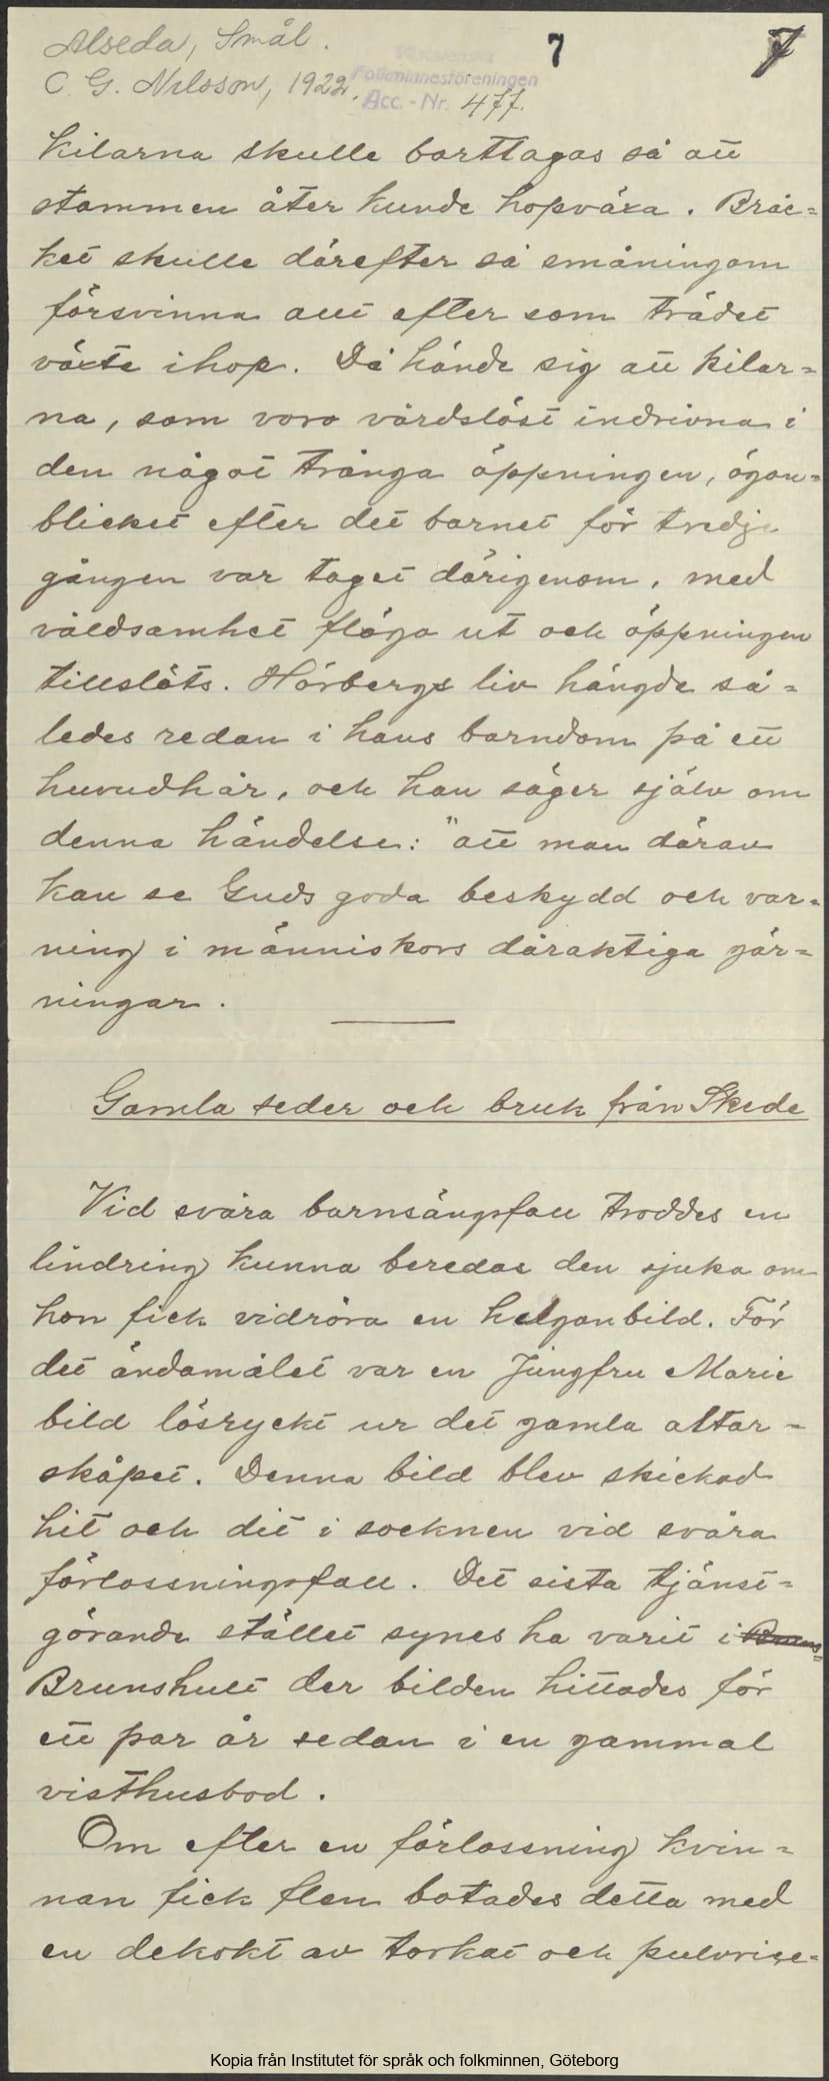 Alseda, Smål.
C. G. Nilsson, 1922.
7
7
Folkminnesföreningen
Acc. - Nr. 477.
kilarna skulle borttagas så att
stammen åter kunde hopväxa. Bråc=
ket skulle därefter så småningom
försvinna allt efter som trädet
växte ihop. Då hände sig att kilar=
na, som voro vårdslöst indrivna i
den något trånga öppningen, ögon=
blicket efter det barnet för tredje
gången var taget därigenom, med
våldsamhet flögo ut och öppningen
tillslöts. Hörbergs liv hängde så=
ledes redan i hans barndom på ett
huvudhår, och han säger själv om
denna händelse: "att man därav
kan se Guds goda beskydd och var=
ning i människors dåraktiga gär=
ningar.
Gamla seder och bruk från Skede
Vid svåra barnsängsfall troddes en
lindring kunna beredas den sjuka om
hon fick vidröra en helgonbild. För
det ändamålet var en Jungfru Marie
bild lösryckt ur det gamla altar=
skåpet. Denna bild blev skickad
hit och dit i socknen vid svåra
förlossningsfall. Det sista tjänst=
görande stället synes ha varit i
Brunshult der bilden hittades för
ett par år sedan i en gammal
visthusbod.
Om efter en förlossning kvin=
nan fick flen botades detta med
en dekokt av torkat och pulvrise=
Kopia från Institutet för språk och folkminnen, Göteborg